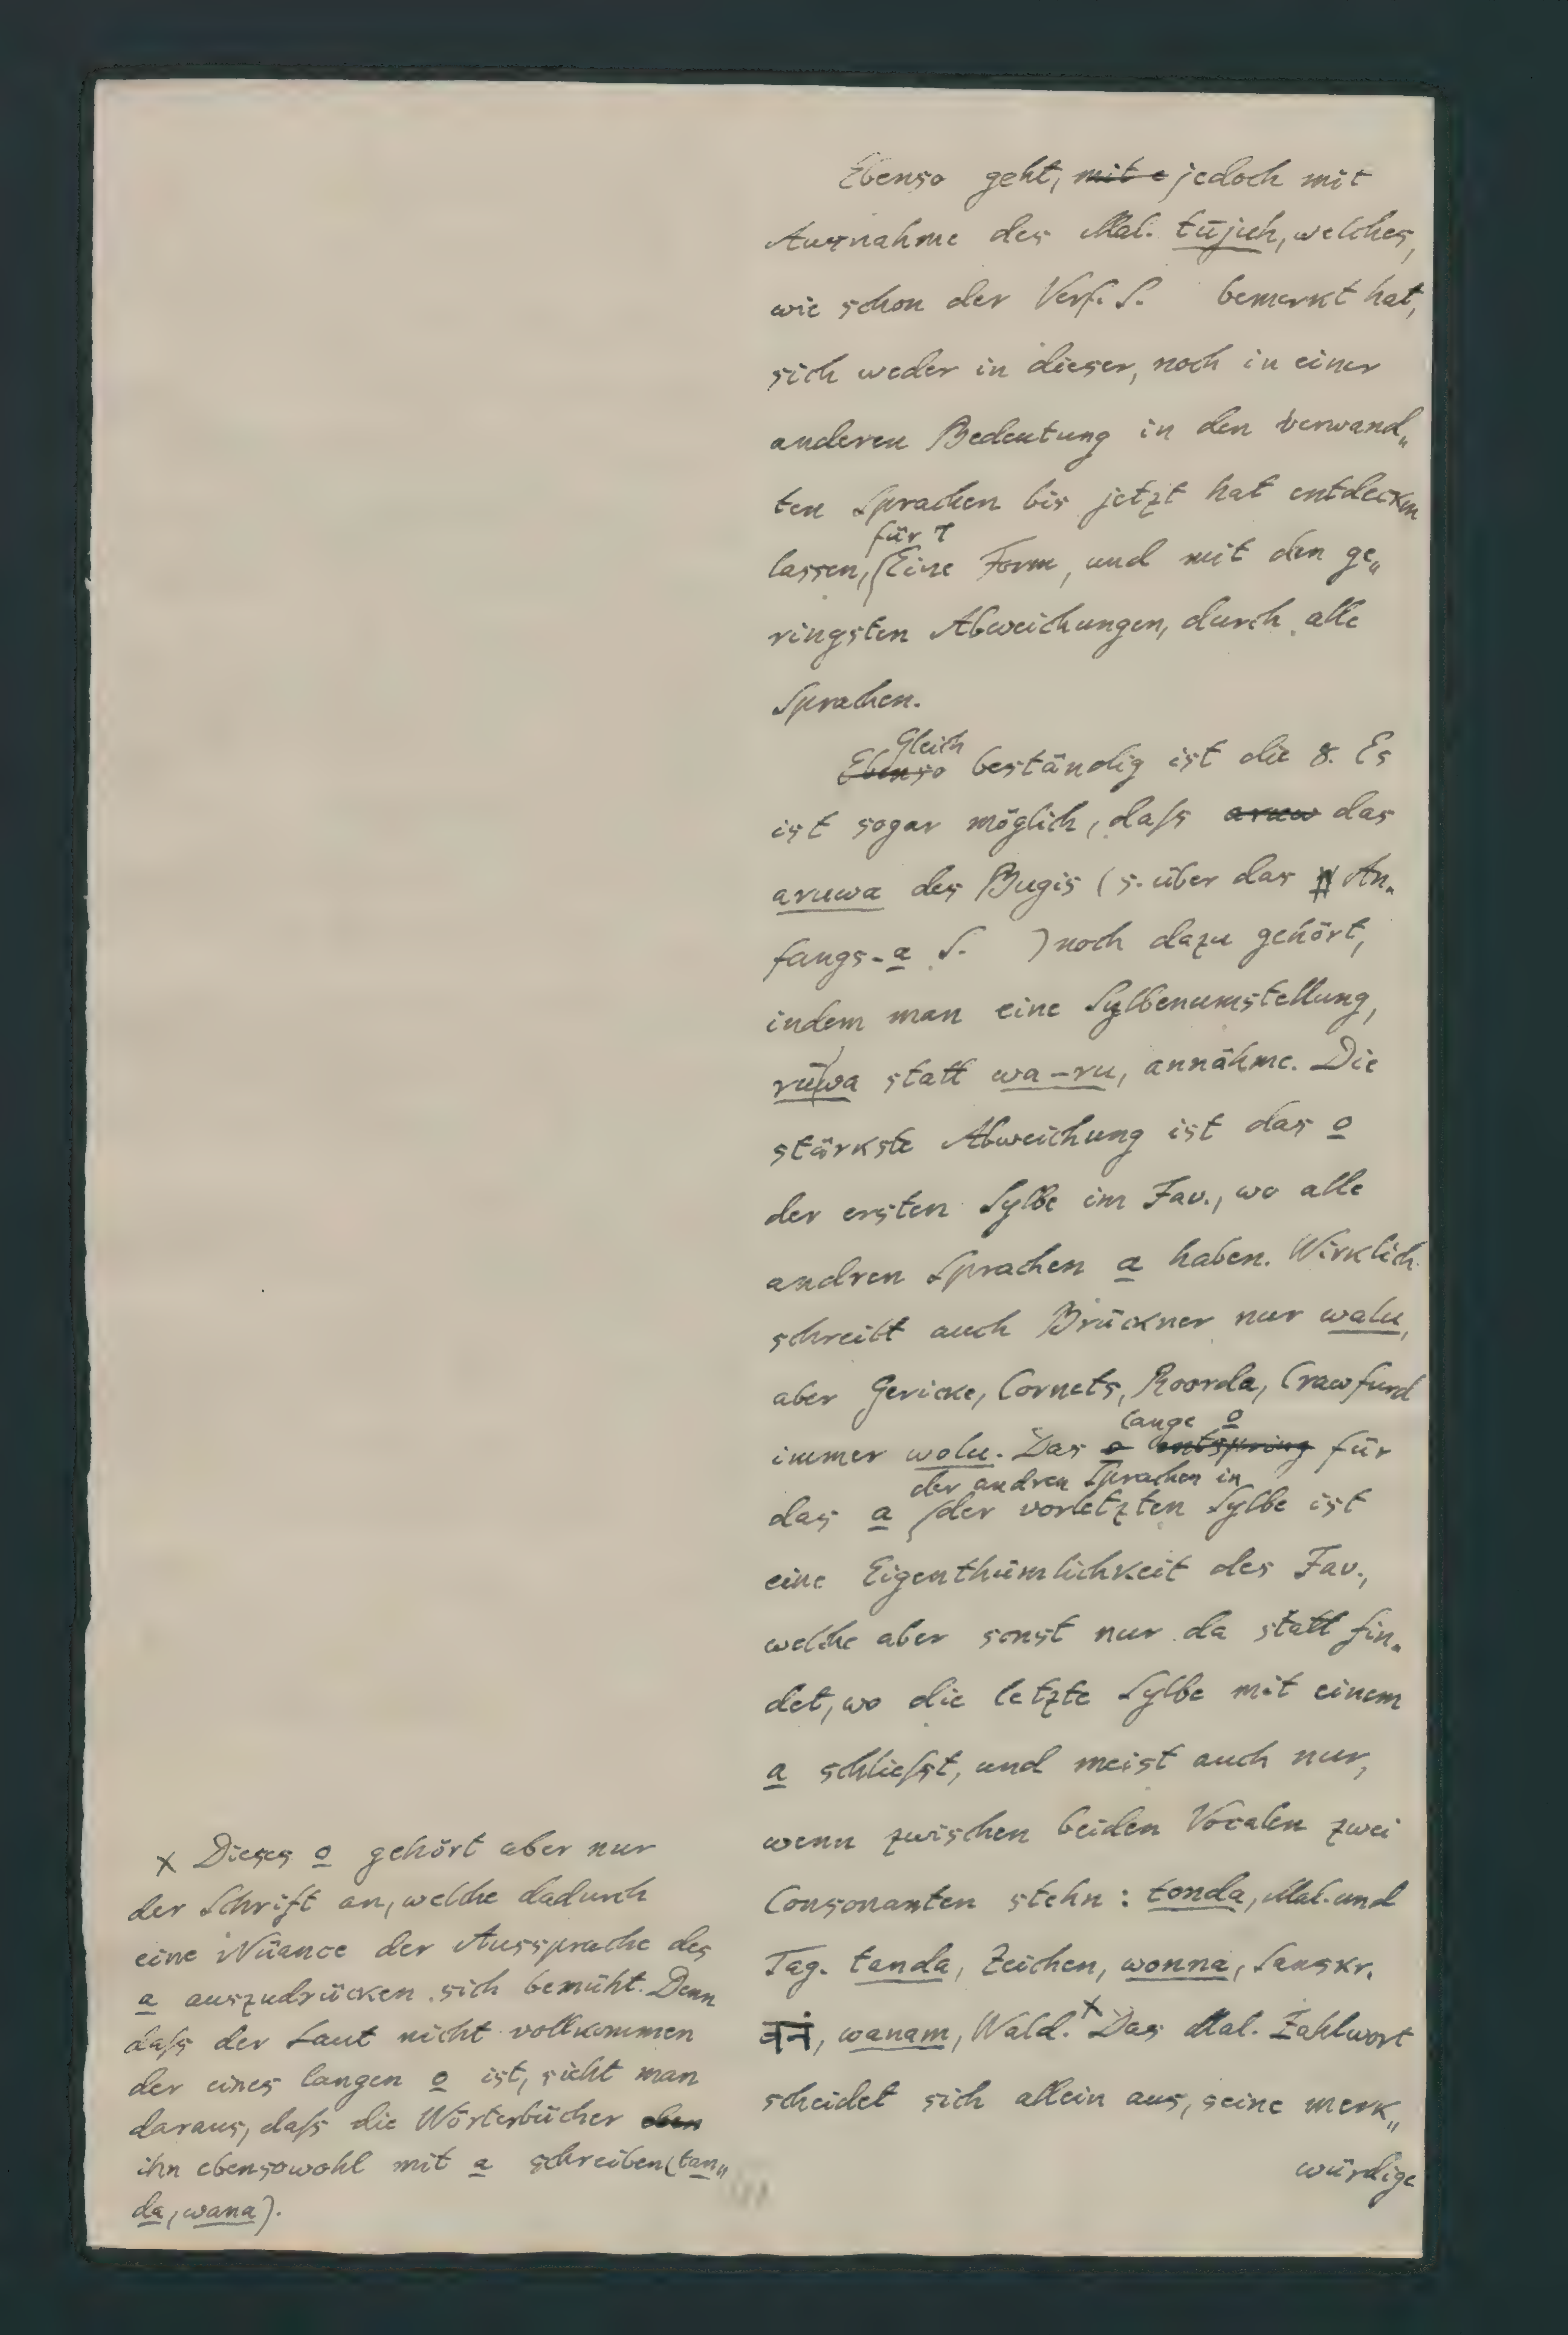 Ebenso geht, mit e jedoch mit
Ausnahme des Mal. tūjuh, welches,
wie schon der Verf. S. bemerkt hat,
sich weder in dieser, noch in einer
anderen Bedeutung in den verwand„
ten Sprachen bis jetzt hat entdecken
für 7
lassen, Eine Form, und mit den ge„
ringsten Abweichungen, durch alle
Sprachen.
Gleich
Ebenso beständig ist die 8. Es
ist sogar möglich, daſs aruw das
aruwa des Bugis (s. über das An„
fangs-a S. ) noch dazu gehört,
indem man eine Sylbenumstellung,
ru wa statt wa-ru, annähme. Die
stärkste Abweichung ist das o
der ersten Sylbe im Jav., wo alle
andren Sprachen a haben. Wirklich
schreibt auch Brückner nur walu,
aber Gericke, Cornets, Roorda, Crawfurd
lange o
immer wolu. Das o entspring für
der andren Sprachen in
das a der vorletzten Sylbe ist
eine Eigenthümlichkeit des Jav.,
welche aber sonst nur da statt fin„
det, wo die letzte Sylbe mit einem
a schlieſst, und meist auch nur,
wenn zwischen beiden Vocalen zwei
Consonanten stehn: tonda, Mal. und
Tag. tanda, Zeichen, wonna, Sanskr.
वनं, wanam, Wald.× Das Mal. Zahlwort
scheidet sich allein aus, seine merk„
würdige
× Dieses o gehört aber nur
der Schrift an, welche dadurch
eine Nüance der Aussprache des
a auszudrücken sich bemüht. Denn
daſs der Laut nicht vollkommen
der eines langen o ist, sieht man
daraus, daſs die Wörterbücher eben
ihn ebensowohl mit a schreiben (tan„
da, wana).